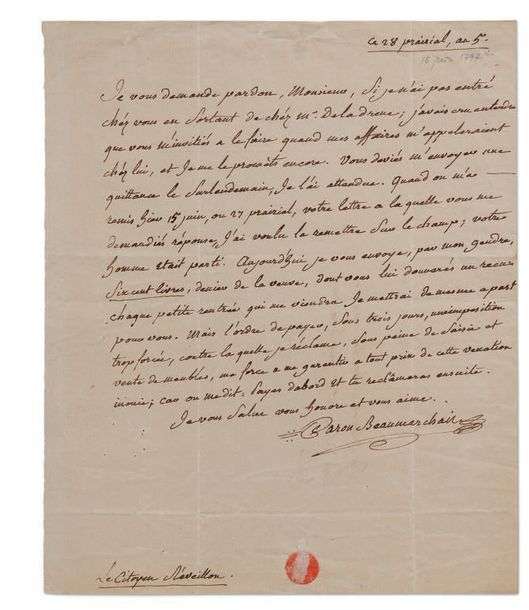 ce 28 prairial, an 5.
16 juin 1797
Je vous demande pardon, Monsieur, si je n'ai pas entré
chéz vous en Sortant de chéz mr. Deladreue; j'avais cru entendre
que vous m'invitiés a le faire quand mes affaires m'appeleraient
chéz lui, et Je me le promèts encore. Vous deviés m'envoyer une
quittance le Surlendemain, Je l'ai attendue. Quand on m'a
remis hier 15 juin, ou 27 prairial, votre lettre a la quelle vous me
demandiés réponse, J'ai voulu la remettre Sur le champ; votre
homme était parti. Aujourdhui je vous envoye, par mon gendre,
Six cent livres, denier de la veuve, dont vous lui donnerés un recu.
chaque petite rentrée qui me viendra Je mettrai de mesme a part
pour vous. Mais l'ordre de payer, Sous trois jours, une imposition
trop forcée, contre la quelle je réclame, Sous peine de Saisie et
vente de meubles, me force a me garantir a tout prix de cette vexation
inouie; car on me dit: Payes d'abord et tu reclameras ensuite.
Je vous Salue vous honore et vous aime.
Caron Beaumarchais
Le Citoyen Réveillon.